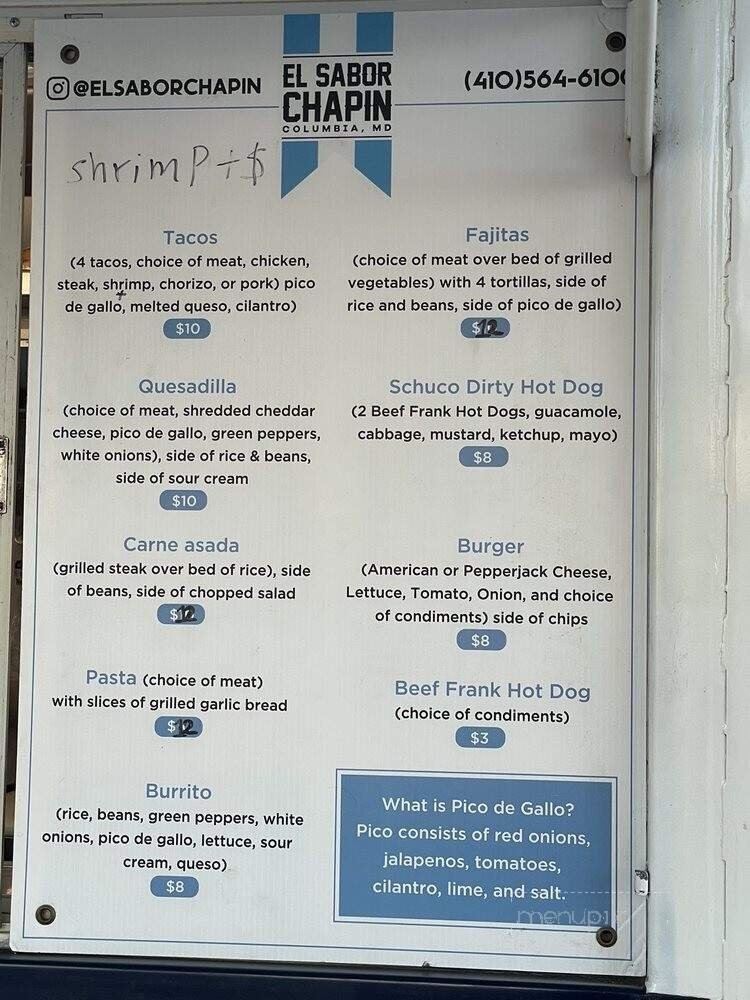 @ELSABORCHAPIN
EL SABOR
CHAPIN
COLUMBIA, MD
(410)564-610
shrimp + $
Tacos
(4 tacos, choice of meat, chicken,
steak, shrimp, chorizo, or pork) pico
de gallo, melted queso, cilantro)
$10
Quesadilla
(choice of meat, shredded cheddar
cheese, pico de gallo, green peppers,
white onions), side of rice & beans,
side of sour cream
$10
Carne asada
(grilled steak over bed of rice), side
of beans, side of chopped salad
$12
Pasta (choice of meat)
with slices of grilled garlic bread
$12
Burrito
(rice, beans, green peppers, white
onions, pico de gallo, lettuce, sour
cream, queso)
$8
Fajitas
(choice of meat over bed of grilled
vegetables) with 4 tortillas, side of
rice and beans, side of pico de gallo)
$12
Schuco Dirty Hot Dog
(2 Beef Frank Hot Dogs, guacamole,
cabbage, mustard, ketchup, mayo)
$8
Burger
(American or Pepperjack Cheese,
Lettuce, Tomato, Onion, and choice
of condiments) side of chips
$8
Beef Frank Hot Dog
(choice of condiments)
$3
What is Pico de Gallo?
Pico consists of red onions,
jalapenos, tomatoes,
cilantro, lime, and salt.
menupix